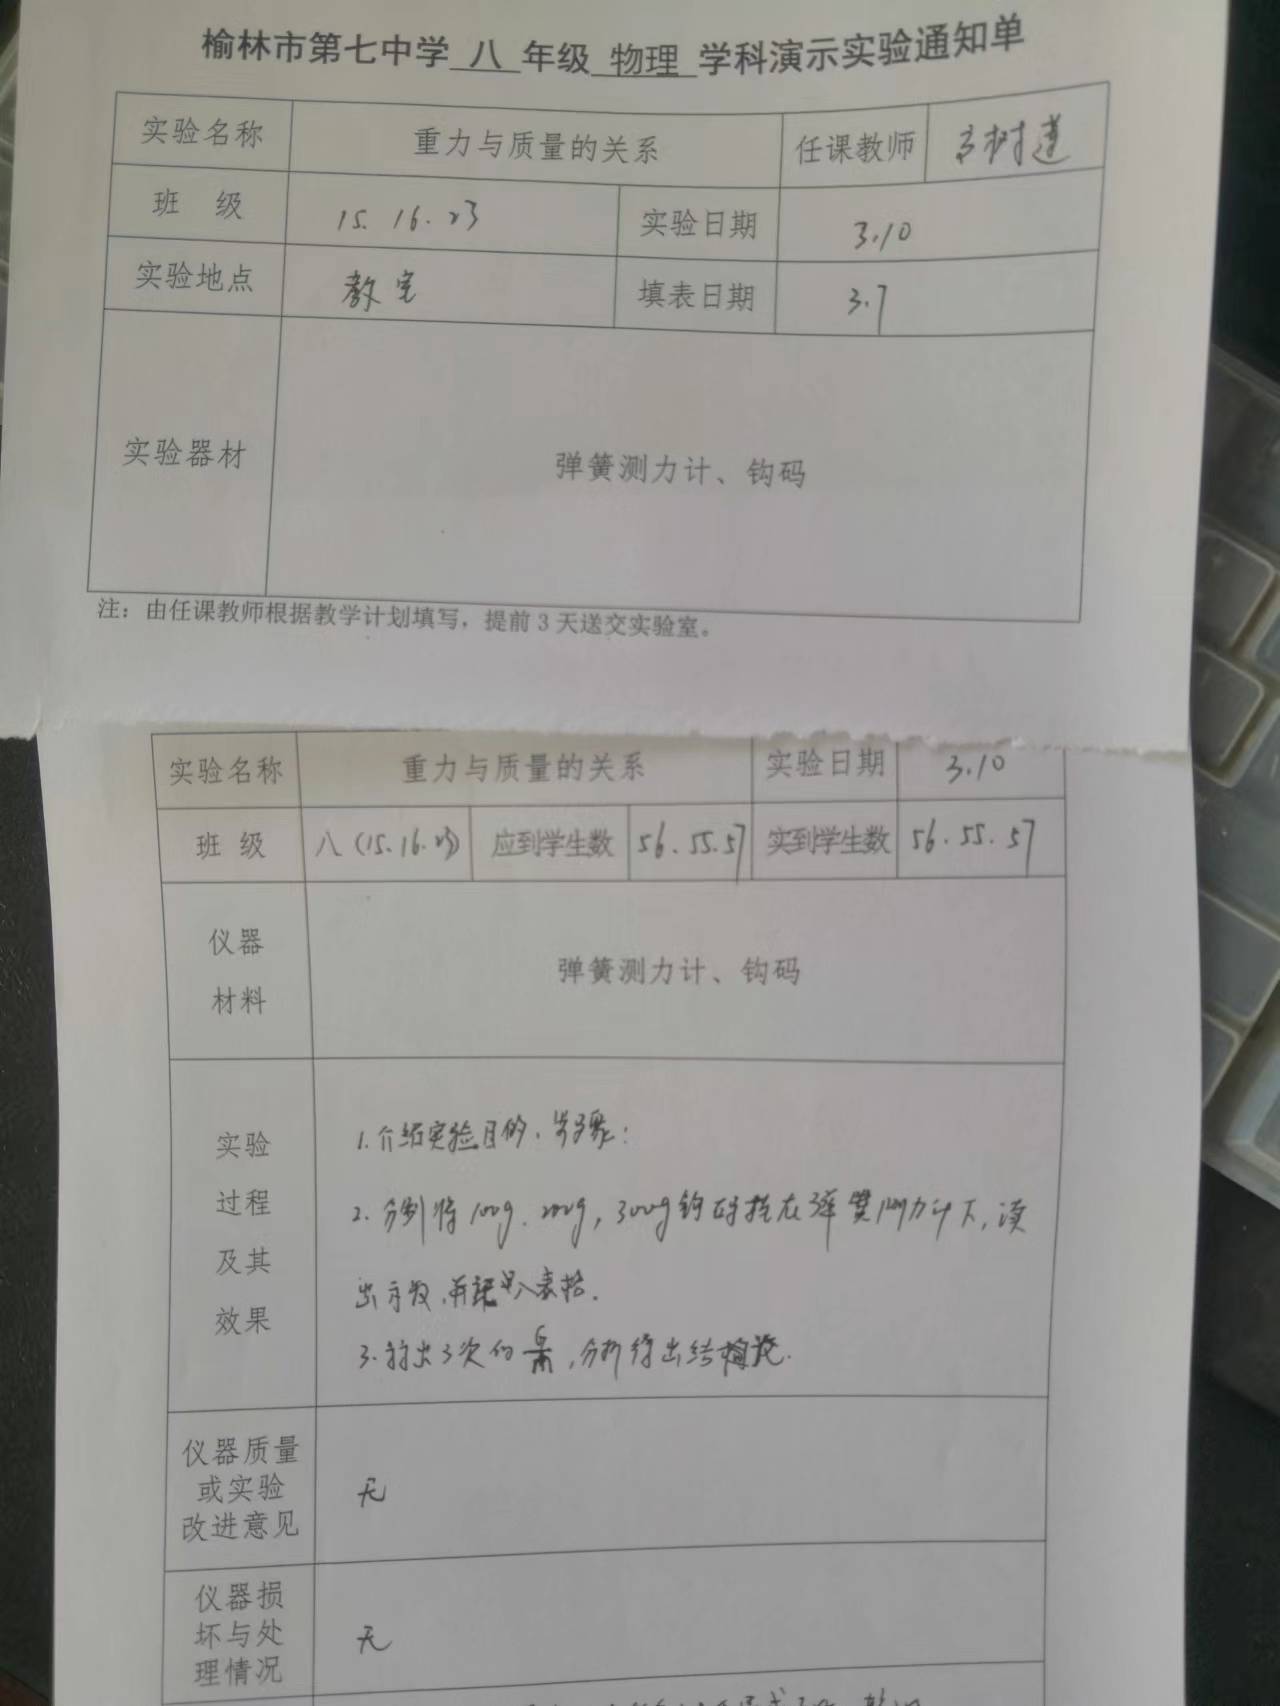 榆林市第七中学 八 年级 物理 学科演示实验通知单
实验名称 重力与质量的关系 任课教师 高树莲
班 级 15. 16. 23 实验日期 3.10
实验地点 教室 填表日期 3.7
实验器材 弹簧测力计、钩码
注：由任课教师根据教学计划填写，提前3天送交实验室。
实验名称 重力与质量的关系 实验日期 3.10
班 级 八(15.16.23) 应到学生数 56.55.57 实到学生数 56.55.57
仪器
材料
弹簧测力计、钩码
实验
过程
及其
效果
1.介绍实验目的、步骤：
2.分别将100g、200g，300g钩码挂在弹簧测力计下，读
出示数，并记录入表格.
3.算出3次的G/m，分析得出结论.
仪器质量
或实验
改进意见
无
仪器损
坏与处
理情况
无